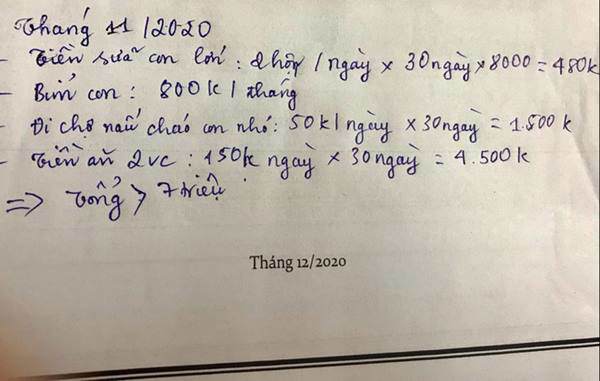 Tháng 11/2020
- Tiền sữa con lớn: 2 hộp / ngày x 30 ngày x 8000 = 480k
- Bỉm con: 800k / tháng
- Đi chợ nấu cháo con nhỏ: 50k / ngày x 30 ngày = 1.500k
- Tiền ăn 2vc: 150k ngày x 30 ngày = 4.500k
=> Tổng > 7 triệu
Tháng 12/2020